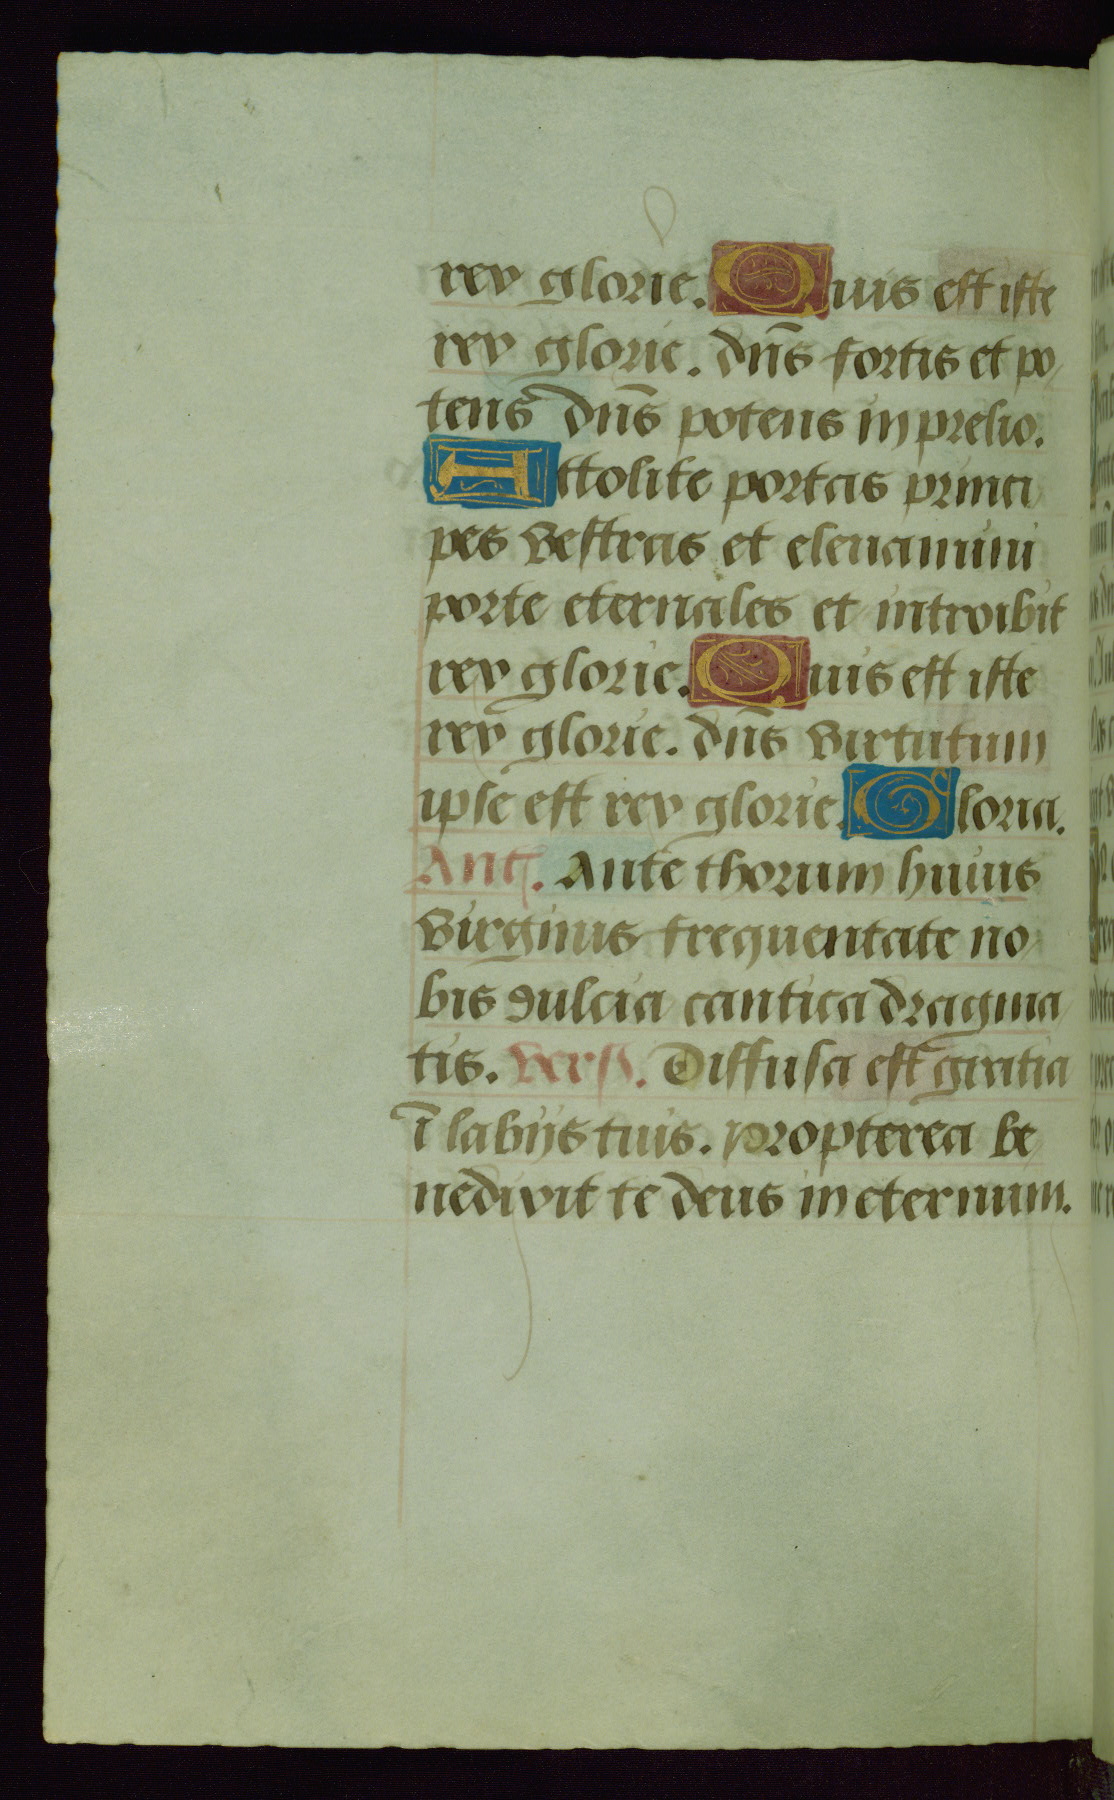 rex glorie. Quis est iste
rex glorie. dns̄ fortis et po
tens dns̄ potens in prelio.
Attolite portas princi
pes vestras et eleuamini
porte eternales et introibit
rex glorie. Quis est iste
rex glorie. dns̄ virtutum
ipse est rex glorie. Gloria.
Ant. Ante thorum huius
virginis frequentate no
bis dulcia cantica dragma
tis. Vers. Diffusa est gratia
ī labijs tuis. Propterea be
nedixit te deus in eternum.